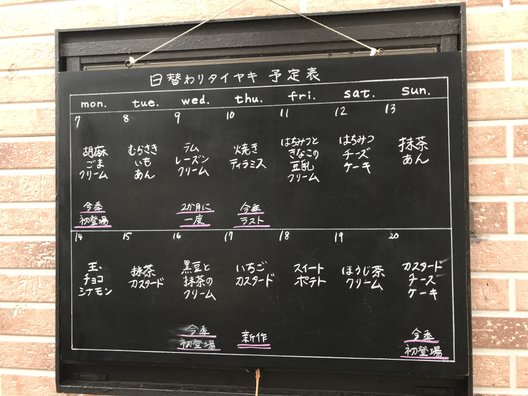 日替わりタイヤキ 予定表
mon. tue. wed. thu. fri. sat. sun.
7
胡麻
ごま
クリーム
今季
初登場
8
むらさき
いも
あん
9
ラム
レーズン
クリーム
2か月に
一度
10
焼き
ティラミス
今季
ラスト
11
はちみつと
きなこの
豆乳
クリーム
12
はちみつ
チーズ
ケーキ
13
抹茶
あん
14
チョコ
シナモン
15
抹茶
カスタード
16
黒豆と
抹茶の
クリーム
今季
初登場
17
いちご
カスタード
新作
18
スイート
ポテト
19
ほうじ茶
クリーム
20
カスタード
チーズ
ケーキ
今季
初登場